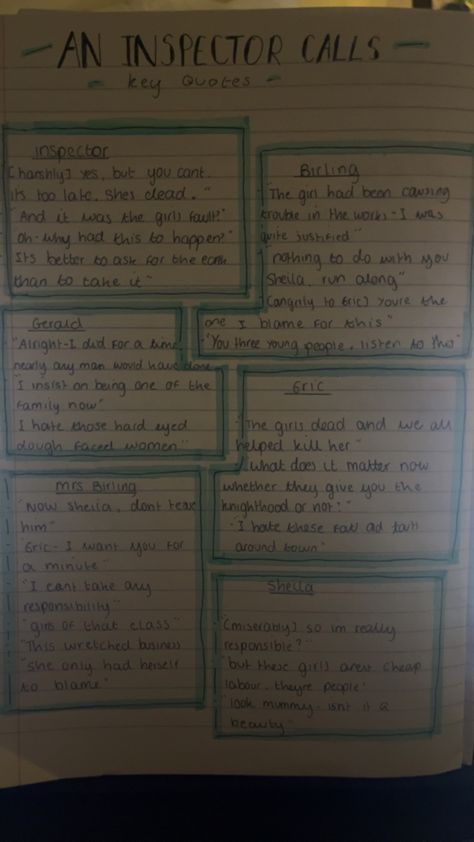 - AN INSPECTOR CALLS -
- key Quotes -
Inspector
[harshly] yes, but you cant.
its too late. Shes dead."
"And it was the girls fault?"
"oh - why had this to happen?"
"Its better to ask for the earth
than to take it"
Birling
"The girl had been causing
trouble in the works - I was
quite justified"
"nothing to do with you
Sheila, run along"
(angrily to Eric) youre the
one I blame for this"
"You three young people, listen to this"
Gerald
"Alright - I did for a time
nearly any man would have done
"I insist on being one of the
family now"
I hate those hard eyed
dough faced women"
Eric
"The girls dead and we all
helped kill her"
"what does it matter now
whether they give you the
knighthood or not?"
"I hate these fat old tart
around town"
Mrs Birling
"Now Sheila, dont tease
him"
"Eric - I want you for
a minute"
"I cant take any
responsibility"
"girls of that class"
"This wretched business
"she only had herself
to blame"
Sheila
[miserably] so im really
responsible?"
"but these girls arent cheap
labour. theyre people'
"look mummy - isnt it a
beauty"